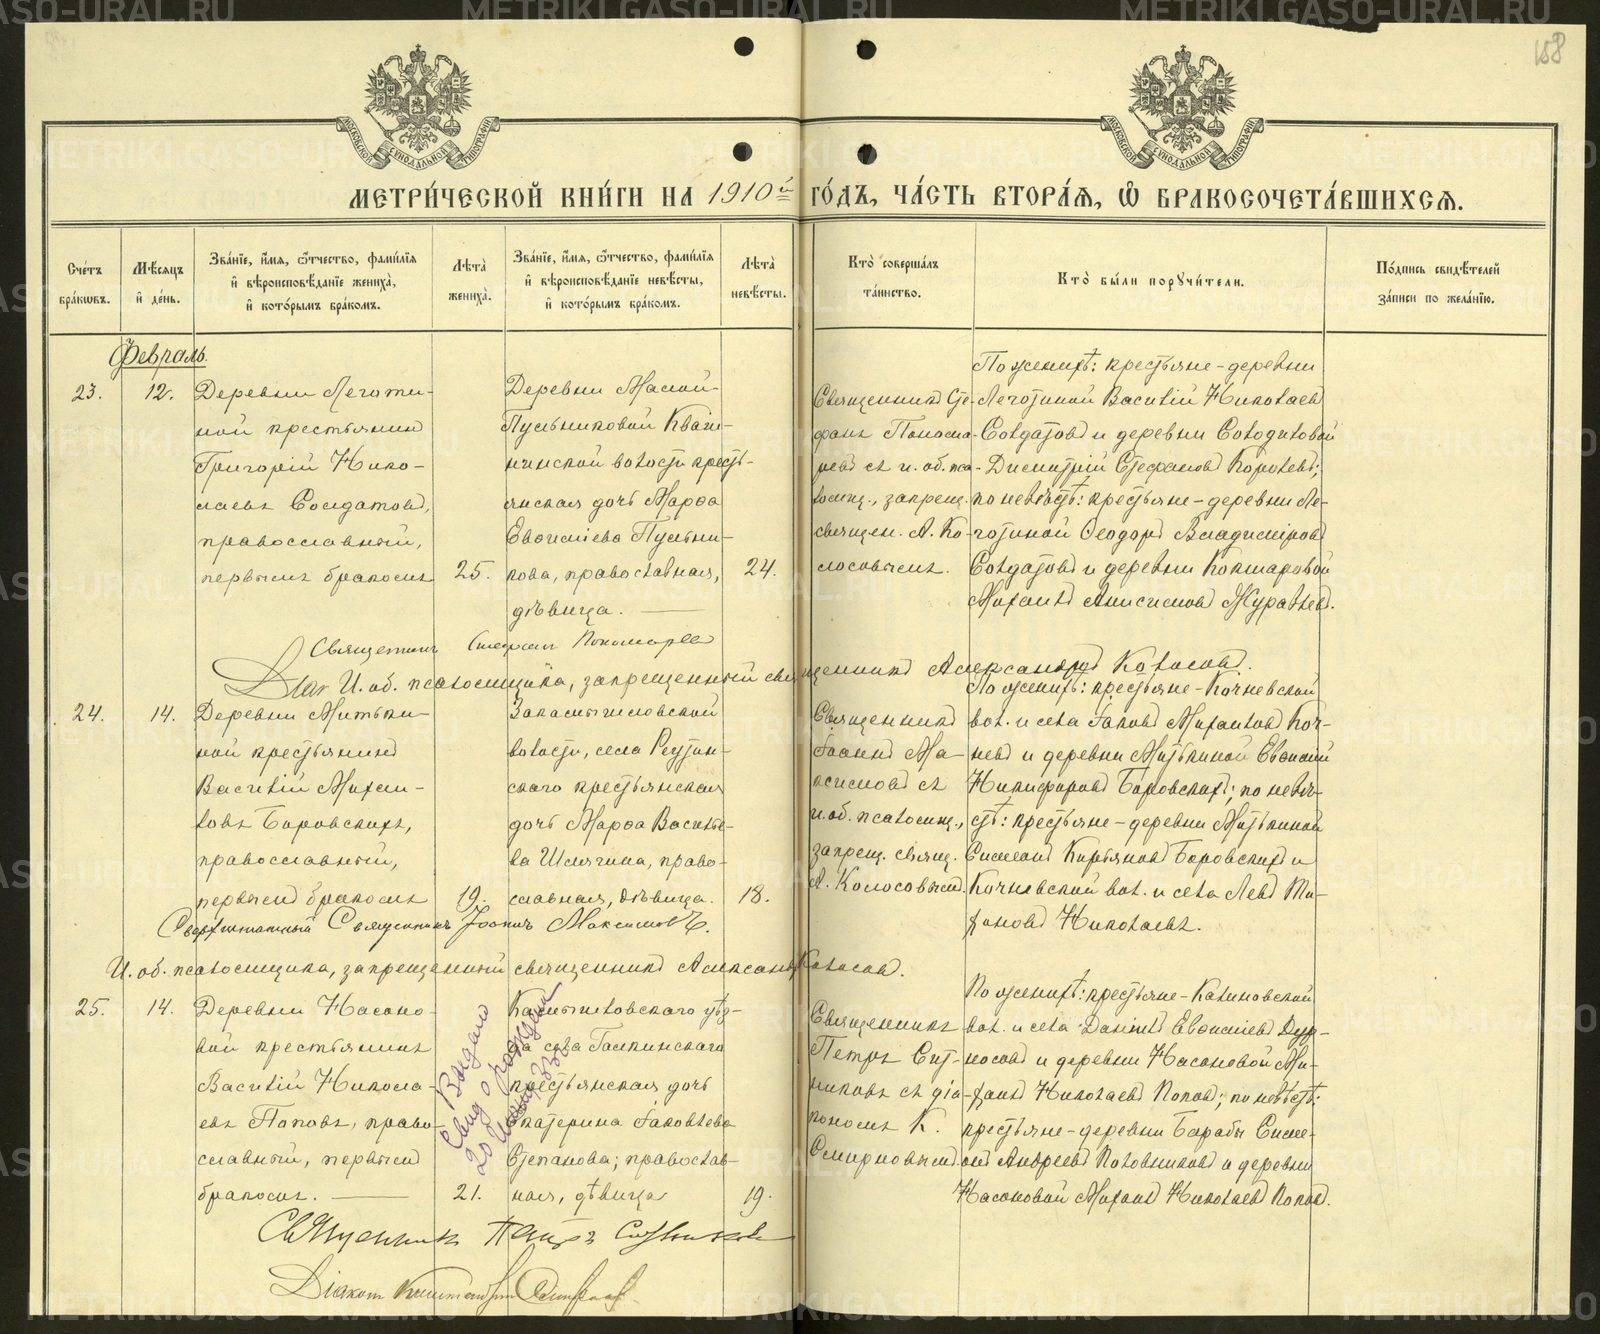 158
МЕТРИ́ЧЕСКОЙ КНИ́ГИ НА 1910й ГО́ДЪ, ЧА́СТЬ ВТОРА́Я, Ѿ БРАКОСОЧЕТА́ВШИХСЯ.
Сче́тъ бра́кωвъ.
Мѣ́сяцъ и҆ де́нь.
Зва́нїе, и҆́мя, ѻ҆́тчество, фами́лїя и҆ вѣроисповѣ́данїе жениха̀, и҆ кото́рымъ бра́комъ.
Лѣта̀ жениха̀.
Зва́нїе, и҆́мя, ѻ҆́тчество, фами́лїя и҆ вѣроисповѣ́данїе невѣ́сты, и҆ кото́рымъ бра́комъ.
Лѣта̀ невѣ́сты.
Кто̀ соверша́лъ та́инство.
Кто̀ бы́ли порꙋчи́тели.
По́дпись свидѣ́телей за́писи по жела́нїю.
Февраль.
23.
12.
Деревни Леготи-
ной крестьянинъ
Григорій Нико-
лаевъ Солдатовъ,
православный,
первымъ бракомъ
25.
Деревни Малой-
Пульниковой Кваш-
нинской волости кресть-
янская дочь Марѳа
Евѳиміева Пульни-
кова, православная,
дѣвица.
24.
Священникъ Сте-
фанъ Понома-
ревъ съ и. об. пса-
ломщ., запрещ.
священ. А. Ко-
лосовымъ.
По женихѣ: крестьяне - деревни
Леготиной Василій Николаевъ
Солдатовъ и деревни Соколиковой
Димитрій Стефановъ Королевъ;
по невѣстѣ: крестьяне - деревни Ле-
готиной Ѳеодоръ Владиміровъ
Солдатовъ и деревни Кокшаровой
Михаилъ Анисимовъ Журавлевъ.
Священникъ Стефанъ Пономаревъ
И. об. псаломщика, запрещенный священникъ Александръ Колосовъ.
24.
14.
Деревни Митьки-
ной крестьянинъ
Василій Михаи-
ловъ Боровскихъ,
православный,
первымъ бракомъ
19.
Закамышловской
волости, села Реутин-
скаго крестьянская
дочь Марѳа Василье-
ва Шмягина, право-
славная, дѣвица.
18.
Священникъ
Іоаннъ Ма-
ксимовъ съ
и. об. псаломщ.,
запрещ. свящ.
А. Колосовымъ.
По женихѣ: крестьяне - Кочневской
вол. и села Іаковъ Михаиловъ Коч-
невъ и деревни Митькиной Евѳимій
Никифоровъ Боровскихъ; по невѣ-
стѣ: крестьяне - деревни Митькиной
Симеонъ Кирьяновъ Боровскихъ и
Кочневской вол. и села Левъ Ти-
хановъ Николаевъ.
Сверхштатный Священникъ Іоаннъ Максимовъ.
И. об. псаломщика, запрещенный священникъ Александръ Колосовъ.
25.
14.
Деревни Насоно-
вой крестьянинъ
Василій Никола-
евъ Поповъ, право-
славный, первымъ
бракомъ.
21.
Выдано
свид о рожден
Камышловскаго уѣз-
да села Галкинскаго
крестьянская дочь
Екатерина Іаковлева
Степанова; православ-
ная, дѣвица
19.
Священникъ
Петръ Сит-
никовъ съ діа-
кономъ К.
Смирновымъ
По женихѣ: крестьяне - Калиновской
вол. и села Даніилъ Евѳиміевъ Дур-
носовъ и деревни Насоновой Ми-
хаилъ Николаевъ Поповъ; по невѣстѣ:
крестьяне - деревни Барабы Симе-
онъ Андреевъ Половниковъ и деревни
Насоновой Михаилъ Николаевъ Поповъ.
Священникъ Петръ Ситниковъ
Діаконъ Константинъ Смирновъ